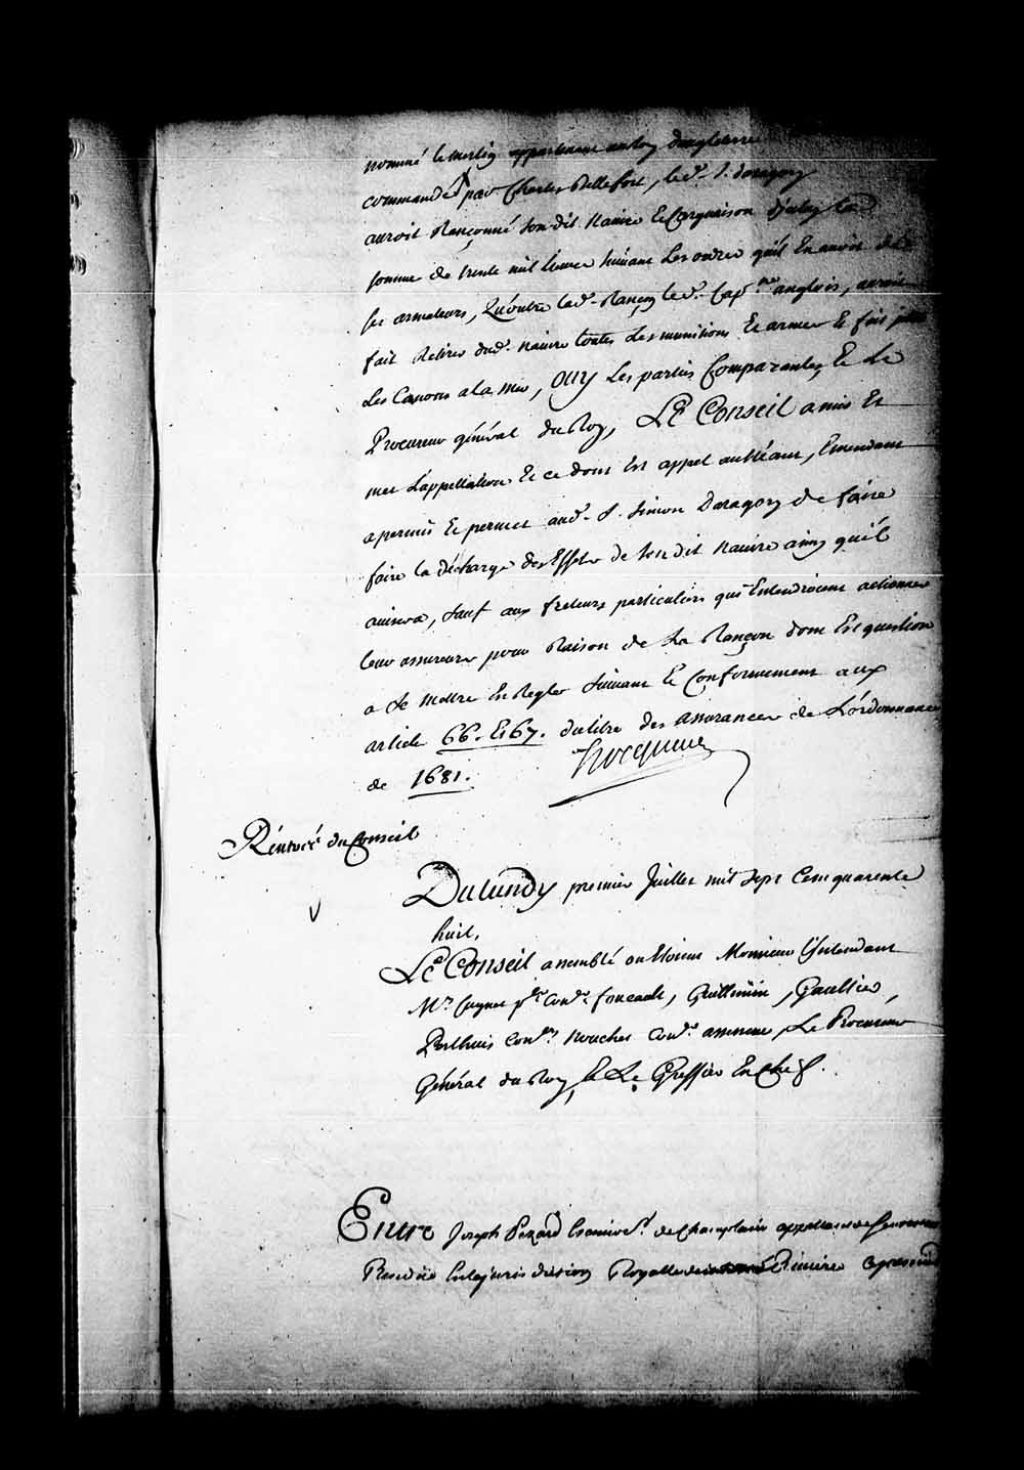 nommé le merlin appartenant au Roy dangleterre
commandé par Charles Bellefort, led. S. daragon
auroit Rançonné son dit Navire Et Cargaison à la
somme de trente mil livres suivant Les ordres quil En avoit de
ses armateurs, Qu'outre lad. Rançon led. Cap.ne anglois, auroit
fait Retirer dud. navire toutes Les munitions Et armes Et fait
Les Canons a la mer, OUY Les parties Comparantes Et Le
Procureur général du Roy, LE Conseil a mis Et
met L'appellation Et ce dont Est appel au Néant, Emendant
a permis Et permet aud. S. Simon Daragon de faire
faire la décharge des Effets de son dit navire ainsy qu'il
avisera, sauf aux freteurs particuliers qui Entendroient actionner
leur assureurs pour Raison de La Rançon dont Est question
a se mettre En Regles suivant Et Conformement aux
article 66. Et 67. du titre des assurances de L'ordonnance
de 1681. hocquart
Rentrée du Conseil
Du Lundy premier Juillet mil sept Cent quarante
huit,
LE Conseil assemblé ou Etoient Monsieur l'Intendant
Mrs Cugnet p.er Con.er foucault, Guillimin, Gaultier,
Perthuis con.ers nouchet con.er assesseur, Le Procureur
Général du Roy, Et Le Greffier En Chef.
Entre Joseph Pezard Ecuier S.r de Champlain appellant de Sentence
Rendüe En la jurisdiction Royalle des Rivieres